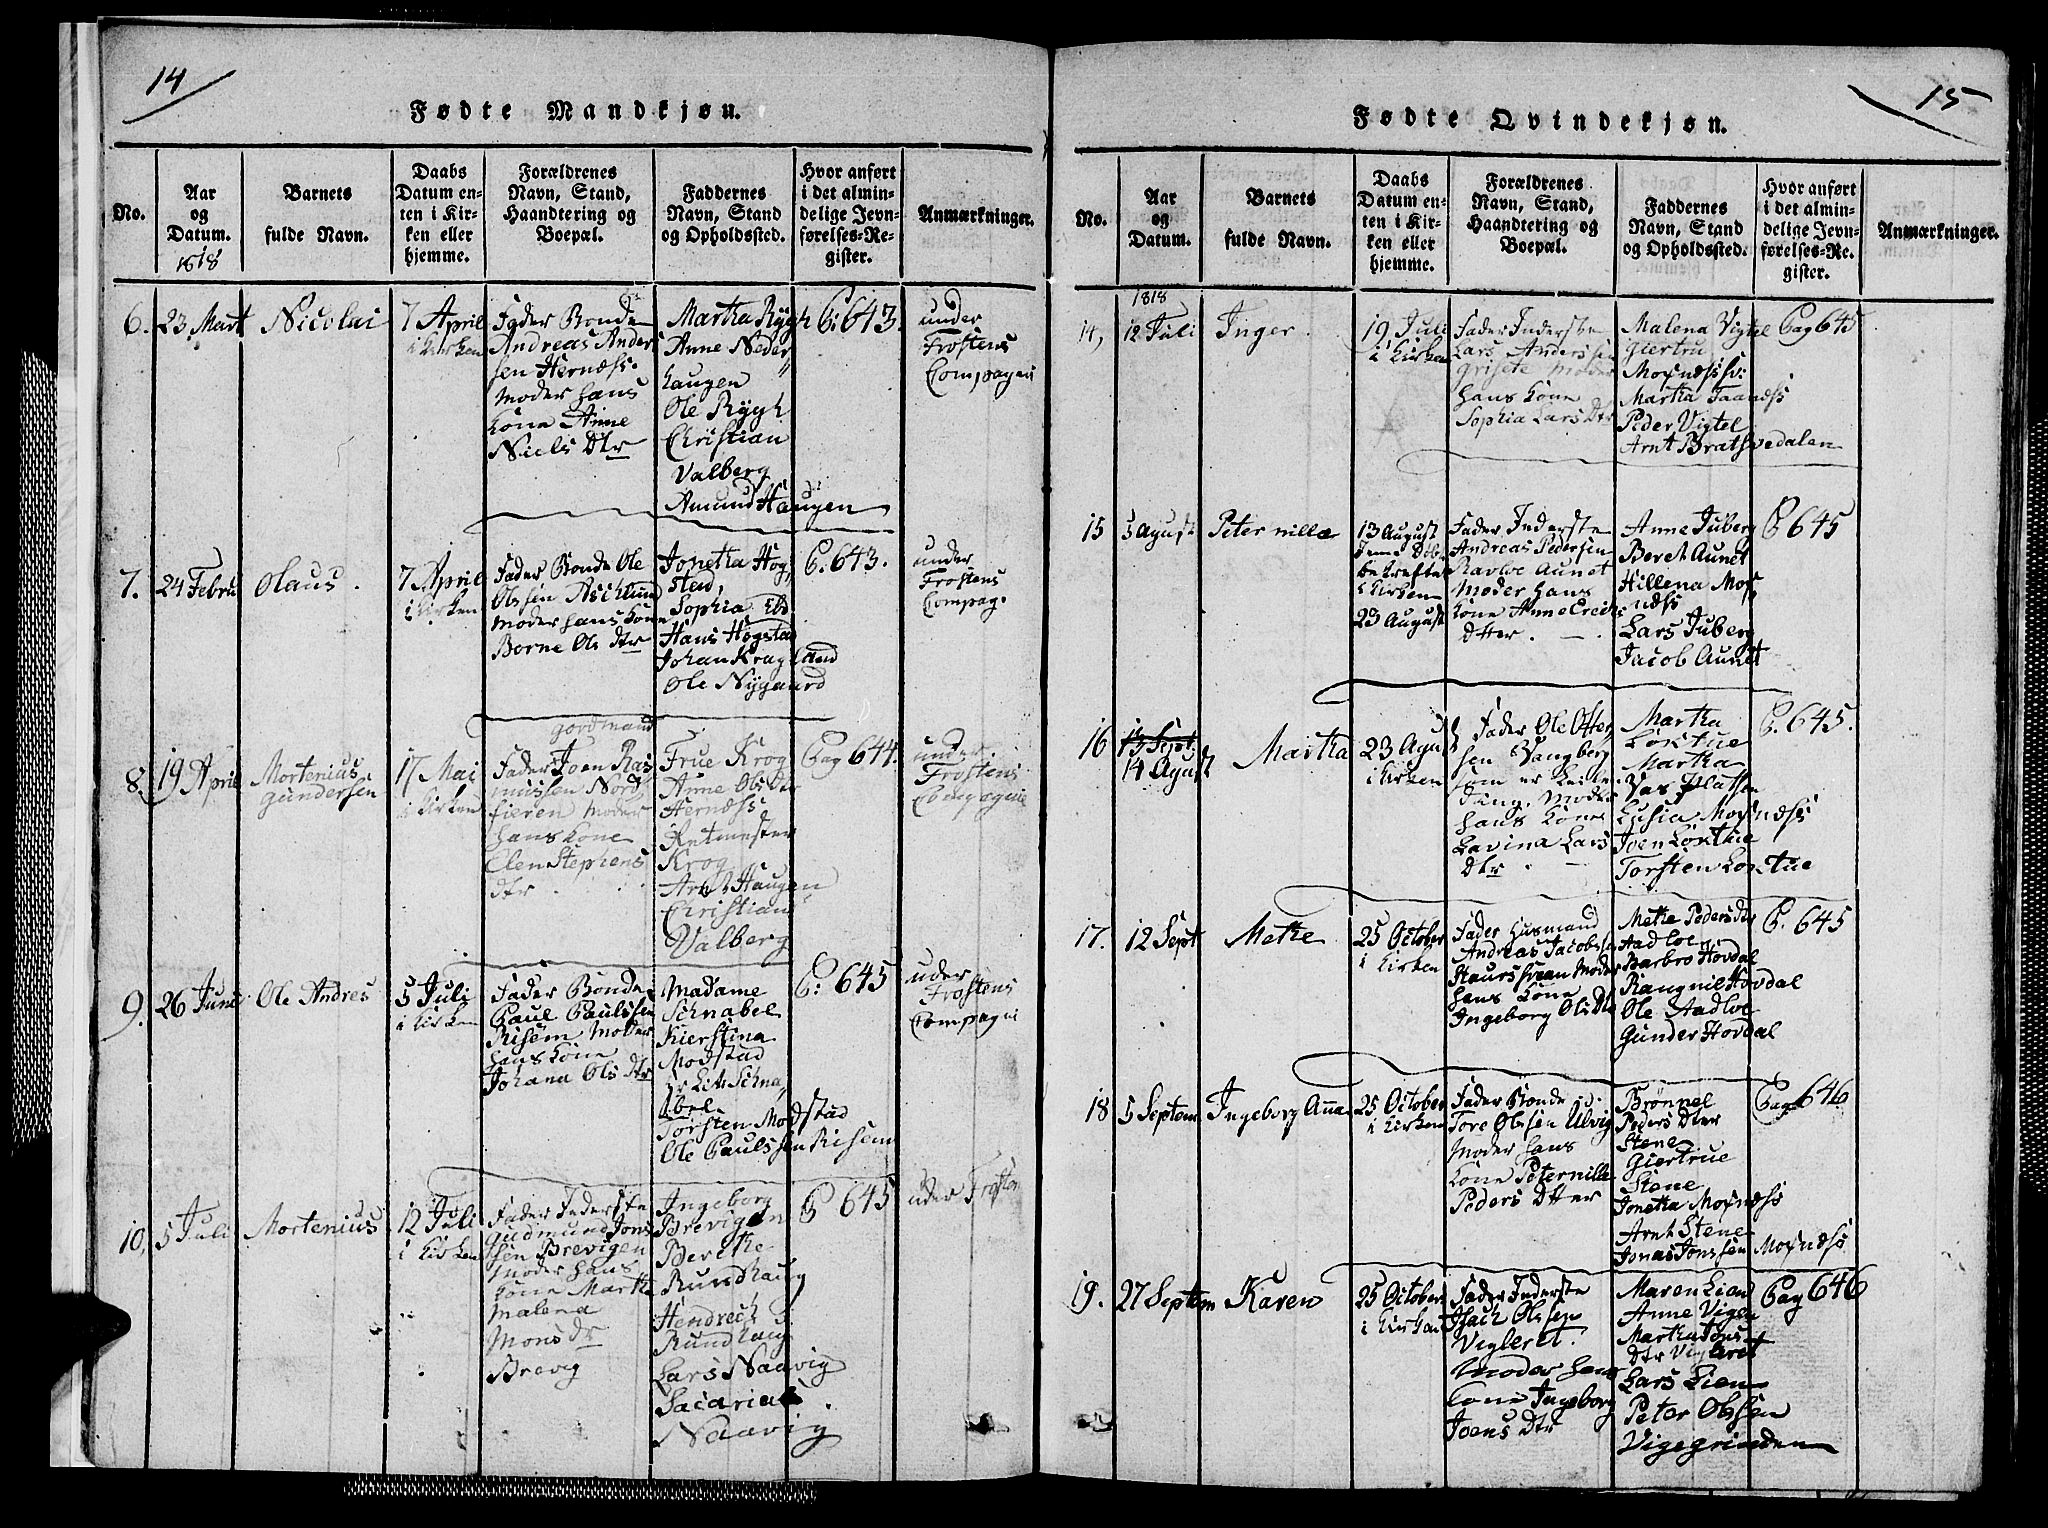 14
Fødte Mandkjøn.
No.
Aar
og
Datum.
1818
Barnets
fulde Navn.
Daabs
Datum en-
ten i Kir-
ken eller
hjemme.
Forældrenes
Navn, Stand,
Haandtering og
Boepæl.
Faddernes
Navn, Stand
og Opholdssted.
Hvor anført
i det almin-
delige Jevn-
førelses-Re-
gister.
Anmærkninger.
6.
23 Mart
Nicolai
7 April
i Kirken
Fader Bonde
Andreas Ander
sen Hernæss.
Moder hans
Kone Anne
Niels Dtr
Martha Rygh
Anne Neder
haugen
Ole Rygh
Christian
Valberg
Amund Haugen
P: 643.
under
Frostens
Compagni
7.
24 Febru
Olaus.
7 April
i Kirken
Fader Bonde Ole
Olssen
Moder hans Kone
Borne Ols Dtr
Jonetha Hog,
stad,
Sophia Ibd
Hans Hogstad
Johan Kragland
Ole Nygaard
P. 643.
under
Frostens
Compag.
8.
19 April
Mortenius
Gundersen
17 Mai
i Kirken
Gordmand
Fader Joen Ras
mussen Nord
fieren Moder
hans Kone
Elen Stephens
dtr
Frue Krog
Anne Ols Dtr
Hernæss
Ritmester
Krog
Arnt Haugen
Christian
Valberg
Pag 644.
under
Frostens
Compagnie
9.
26 June
Ole Andres
5 Juli
i Kirken
Fader Bonde
Paul Paulssen
Risem Moder
hans Kone
Johana Ols dtr
Madame
Schnabel
Kierstina
Modstad
Hr Lit: Schna,
bel
Torsten Modstad
Ole Paulssen Risem
P: 645
uder
Frostens
Compagni
10,
5 Juli
Mortenius
12 Juli
i Kirken
Fader Inderste
Gudmund Jons
sen Brevigen
Moder hans
Kone Martha
Malena
Mons dr
Brevig
Ingeborg
Brevigen
Berethe
Rundhaug
Hendrech
Rundhaug
Lars Naavig
Sacarias
Naavig
P 645
uder Frosten
15
Fødte Qvindekjøn.
No.
Aar
og
Datum.
Barnets
fulde Navn.
Daabs
Datum en-
ten i Kir-
ken eller
hjemme.
Forældrenes
Navn, Stand,
Haandtering og
Boepæl.
Faddernes
Navn, Stand
og Opholdssted.
Hvor anført
i det almin-
delige Jevn-
førelses-Re-
gister.
Anmærkninger.
1818
14,
12 Juli
Inger.
19 Juli
i Kirken
Fader Inderste
Lars Anderssen
Grisete Moder
hans Kone
Sophia Lars Dtr
Malena Vigtel
Giertru
Moxnæss
Martha Taanæss
Peder Vigtel
Arnt Bratsvedalen
Pag 645
15
5 Agust
Peternille
13 August
Jeme Døbt
betreftet
i Kirken
23 August
Fader Inderste
Andreas Pedersen
Ravloe Aunet
Moder hans
Kone Anne Erichs
Dtter.
Anne Juberg
Beret Aunet
Hillena Mox
næss
Lars Juberg
Jacob Aunet
P 645
16
13 Sept.
14 Agust
Martha
23 Agu
i Kirken
Fader Ole Otter
sen Vangberg
som er
Moder
hans Kone
Lavina Lars
Dtr.
Martha
Loxtue
Martha
Vas platsen
Lusia Moxnæss
Joen Loxtue
Torsten Loxtue
P. 645.
17.
12 Sept
Methe
25 October
i Kirken
Fader Husmand
Andreas Jacobssen
Moder
hans Kone
Ingeborg Ols Dtr
Methe Peders Dtr
Aadloe
Barbro Hovdal
Rangnil Hovdal
Ole Aadloe
Gunder Hovdal
P. 645
18
5 Septem
Ingeborg Anna
25 October
i Kirken
Fader Bonde
Tore Olssen Ulvig
Moder hans
Kone Peternille
Peders Dtter
Brønnel
Peders Dtter
Stene
Giertrue
Stene
Jonetha Moxnæss
Arnt Stene
Jonas Jonssen Moxnæss
Pag 646
19.
27 Septem
Karen
25 October
i Kirken
Fader Inderste
Isach Olssen
Vigleret.
Moder hans
Kone Ingeborg
Joens Dtr
Maren Lian
Anne Vigen
Martha Jons
Dtr Vigleret
Lars Lien
Peter Olssen
Vigegrinden
Pag 646